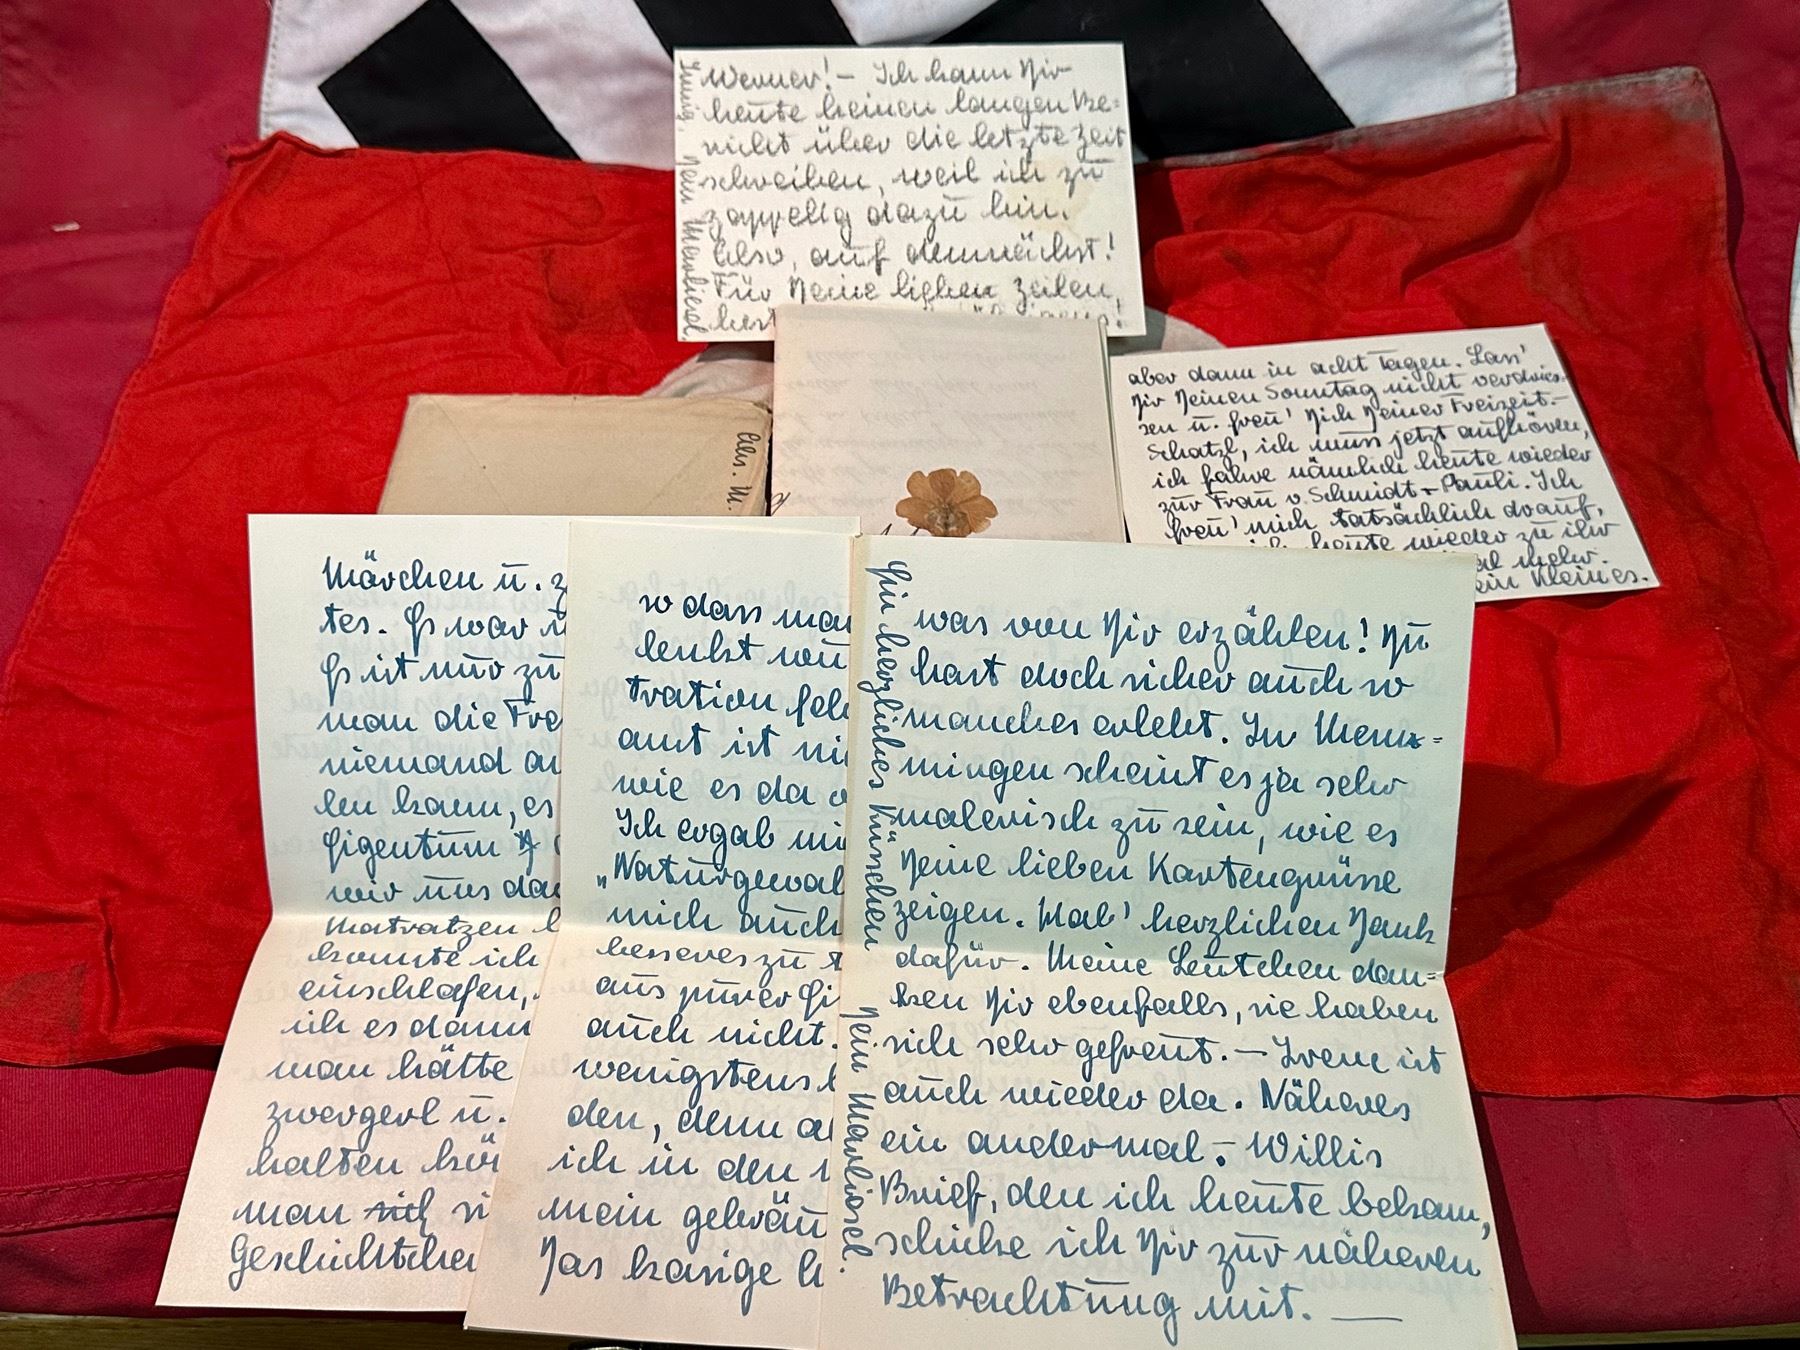 Werner! – Ich kann Dir
heute keinen langen Be=
richt über die letzte Zeit
schreiben, weil ich zu
zappelig dazu bin.
Also, auf demnächst!
Für Deine lieben Zeilen,
Innig, Dein Marliesel
aber dann in acht Tagen. Lass'
Dir Deinen Sonntag nicht verdries-
sen u. freu' Dich Deiner Freizeit. –
Schatzl, ich muss jetzt aufhören,
ich fahre nämlich heute wieder
zur Frau v. Schmidt-Pauli. Ich
freu' mich tatsächlich drauf,
ich heute wieder zu ihr
mehr.
ein Kleines.
Abs. M.
Märchen u. z
tes. Es war
Es ist nur zu
man die Fra
niemand an
len kann, es
Eigentum
wir uns da
Matratzen
konnte ich
einschlafen,
ich es dann
man hätte
zwergerl u.
halten kö
man sich si
Geschichtchen
so dass man
lenkt wu
tration feh
amt ist ni
wie es da
Ich ergab mi
„Naturgewal
mich auch
besseres zu t
aus purer Ei
auch nicht.
wenigstens
den, denn a
ich in den
mein gebräu
Das hasige h
was von Dir erzählen! Du
hast doch sicher auch so
manches erlebt. In Mem=
mingen scheint es ja sehr
malerisch zu sein, wie es
Deine lieben Kartengrüsse
zeigen. Hab' herzlichen Dank
dafür. Meine Leutchen dan=
ken Dir ebenfalls, sie haben
sich sehr gefreut. – Irene ist
auch wieder da. Näheres
ein andermal. – Willis
Brief, den ich heute bekam,
schicke ich Dir zur näheren
Betrachtung mit. —
Ein herzliches Küsschen
Dein Marliesel.